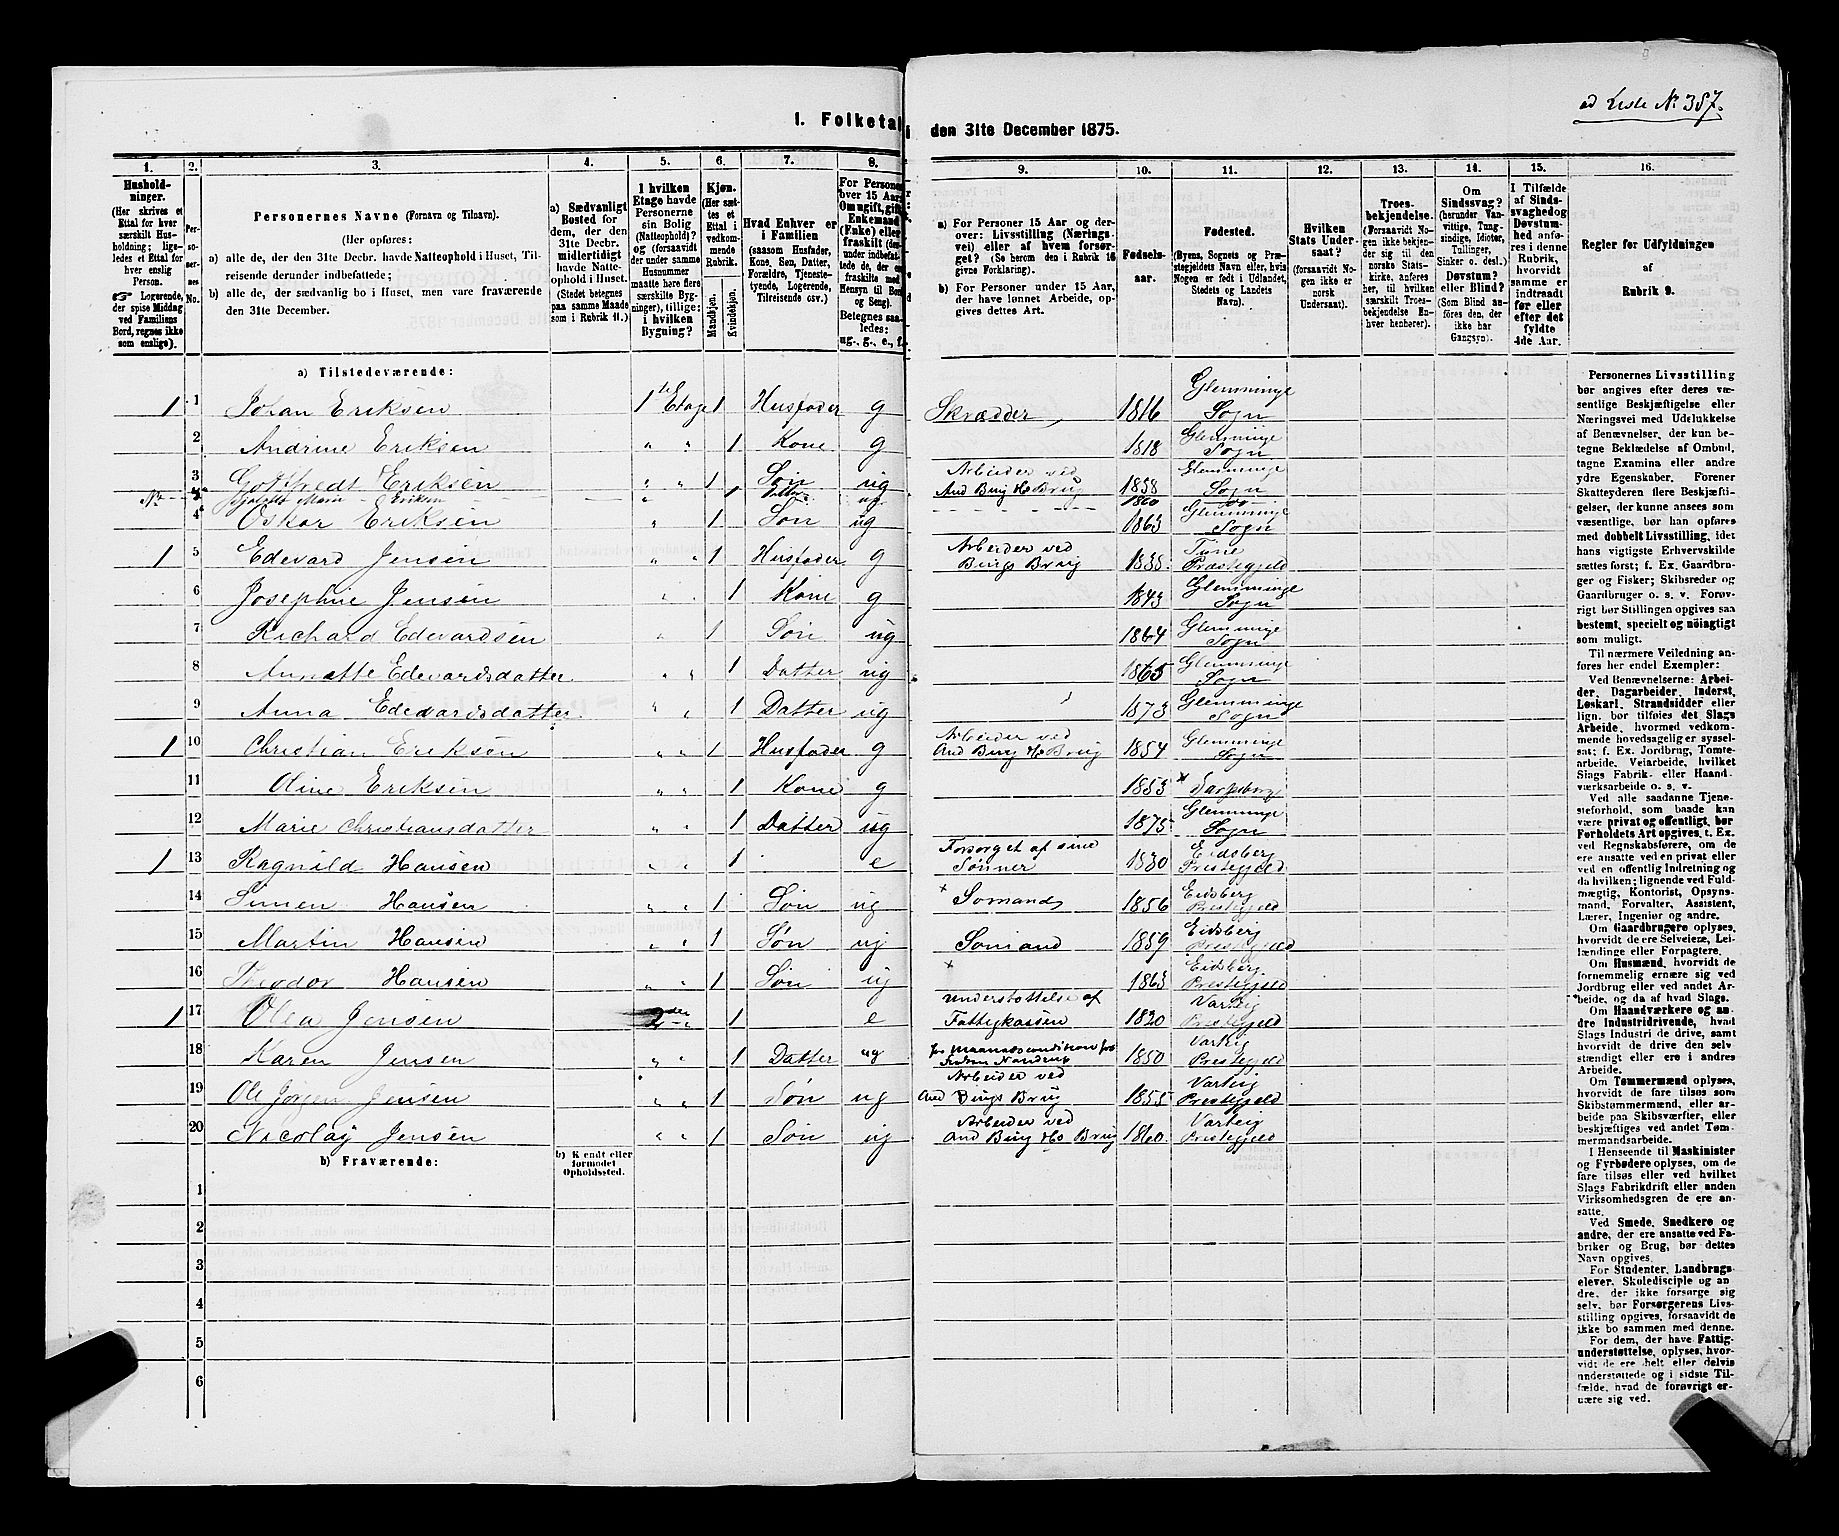 ad Liste № 357.
1. Folketal i den 31te December 1875.
1. 2. 3. 4. 5. 6. 7. 8. 9. 10. 11. 12. 13. 14. 15. 16.
Husholdninger.
(Her skrives et
Ettal for hver
særskilt Hus-
holdning; lige-
ledes et Ettal for
hver enslig
Person.
☞ Logerende,
der spise Middag
ved Familiens
Bord, regnes ikke
som enslige).
Personernes No.
Personernes Navne (Fornavn og Tilnavn).
(Her opføres:
a) alle de, der den 31te Decbr. havde Natteophold i Huset, Til-
reisende derunder indbefattede;
b) alle de, der sædvanlig bo i Huset, men vare fraværende
den 31te December.
a) Sædvanligt
Bosted for
dem, der den
31te Decbr.
midlertidigt
havde Natte-
ophold i Huset.
(Stedet betegnes
paa samme Maade
som i Rubrik 11.)
I hvilken
Etage havde
Personerne
sin Bolig
(Natteophold)?
og (forsaavidt
der under samme
Husnummer
maatte høre flere
særskilte Byg-
ninger), tillige:
i hvilken
Bygning?
Kjøn.
(Her sæt-
tes et
Ettal i
vedkom-
mende
Rubrik.
Mandkjøn.
Kvindekjøn.
Hvad Enhver er
i Familien
(saasom Husfader,
Kone, Søn, Datter,
Forældre, Tjeneste-
tyende, Logerende,
Tilreisende osv.)
For Personer
over 15 Aar,
Om ugift, gift,
Enkemand
(Enke) eller
fraskilt (der-
under indbefat-
tede de, der ere
fraskilte med
Hensyn til Bord
og Seng).
Betegnes saa-
ledes:
ug., g., e., f.
a) For Personer 15 Aar og der-
over: Livsstilling (Nærings-
vei) eller af hvem forsør-
get? (Se herom den i Rubrik 16
givne Forklaring).
b) For Personer under 15 Aar,
der have lønnet Arbeide, op-
gives dettes Art.
Fødsels-
aar.
Fødested.
(Byens, Sognets og Præ-
stegjeldets Navn eller, hvis
Nogen er født i Udlandet,
Stedets og Landets
Navn).
Hvilken
Stats Under-
saat?
(forsaavidt No-
gen ikke er
norsk
Undersaat).
Troes-
bekjendelse.
(Forsaavidt No-
gen ikke bekjen-
der sig til den
norske Stats-
kirke, anføres
her, til hvilken
særskilt Troes-
bekjendelse En-
hver henhører).
Om
Sindssvag?
(herunder Van-
vittige, Tung-
sindige, Idioter,
Tullinger,
Sinker o. desl.)
Døvstum?
eller Blind?
(Som Blind an-
føres den, der
ikke har
Gangsyn).
I Tilfælde
af Sinds-
svaghed og
Døvstum-
hed anfø-
res i denne
Rubrik,
hvorvidt
samme er
indtraadt
før eller
efter det
fyldte
4de Aar.
Regler for Udfyldningen
af
Rubrik 9.
a) Tilstedeværende:
1 1 Johan Eriksen 1ste Etage 1 Husfader g Skrædder 1816 Glemminge Sogn
2 Andrine Eriksen " " 1 Kone g 1818 Glemminge Sogn
3 Gottfredt Eriksen " " 1 Søn ug Arbeider ved And Bing Ho Brug 1858 Glemminge Sogn
Marie Eriksen " 1 Datter ug 1860 do
4 Oskar Eriksen " 1 Søn ug 1863 Glemminge Sogn
1 5 Edevard Jensen " " 1 Husfader g Arbeider ved Bings Brug 1835 Tune Præstegjeld
6 Josephine Jensen " 1 Kone g 1843 Glemminge Sogn
7 Richard Edevardsen " 1 Søn ug 1864 Glemminge Sogn
8 Annette Edevardsdatter " " 1 Datter ug 1865 Glemminge Sogn
9 Anna Edevardsdatter " " 1 Datter ug 1873 Glemminge Sogn
1 10 Christian Eriksen " " 1 Husfader g Arbeider ved And Bing Ho Brug 1854 Glemminge Sogn
11 Oline Eriksen " " 1 Kone g 1853 Sarpsborg
12 Marie Christiansdatter " " 1 Datter ug 1875 Glemminge Sogn
1 13 Ragnild Hansen " " 1 e Forsørget af sine Sønner 1830 Eidsberg Prestegjeld
14 Simen Hansen " " 1 Søn ug Sømand 1856 Eidsberg Prestegjeld
15 Martin Hansen " " 1 Søn ug Sømand 1859 Eidsberg Prestegjeld
16 Theodor Hansen " " 1 Søn ug 1863 Eidsberg Prestegjeld
1 17 Olea Jensen 2den " 1 e Understøttelse af Fattigkassen 1820 Varteig Prestegjeld
18 Karen Jensen " " 1 Datter ug 1850 Varteig Prestegjeld
19 Ole Jørgen Jensen " " 1 Søn ug Arbeider ved And Bings Brug 1855 Varteig Prestegjeld
20 Nicolay Jensen " " 1 Søn ug Arbeider ved And Bing Ho Brug 1860 Varteig Prestegjeld
b) Fraværende:
b) Kendt eller
formodet
Opholdssted.
1
2
3
4
5
6
Personernes Livsstilling
bør angives efter deres væ-
sentlige Beskjæftigelse eller
Næringsvei med Udelukkelse
af Benævnelser, der kun be-
tegne Beklædelse af Ombud,
tagne Examina eller andre
ydre Egenskaber. Forener
Skatteyderen flere Beskjæfti-
gelser, der kunne ansees som
væsentlige, bør han opføres
med dobbelt Livsstilling, idet
hans vigtigste Erhvervskilde
sættes først; f. Ex. Gaardbru-
ger og Fisker; Skibsreder og
Gaardbruger o. s. v. Forøv-
rigt bør Stillingen opgives saa
bestemt, specielt og nøiagtigt
som muligt.
Til nærmere Veiledning an-
føres her endel Exempler:
Ved Benævnelserne: Arbei-
der, Dagarbeider, Inderst,
Løskarl, Strandsidder eller
lign. bør tilføies det Slags
Arbeide, hvormed vedkom-
mende hovedsagelig er syssel-
sat; f. Ex. Jordbrug, Tomte-
arbeide, Veiarbeide, hvilket
Slags Fabrik- eller Haand-
værksarbeide o. s. v.
Ved alle saadanne Tjene-
steforhold, som baade kan
være privat og offentligt, bør
Forholdets Art opgives, t. Ex.
ved Regnskabsførere, om de
ere ansatte ved en privat eller
ved en offentlig Indretning og
da hvilken; lignende ved Fuld-
mægtig, Kontorist, Opsyns-
mand, Forvalter, Assistent,
Lærer, Ingeniør og andre.
Om Gaardbrugere oplyses,
hvorvidt de ere Selveiere, Lei-
lændinge eller Forpagtere.
Om Husmænd, hvorvidt de
fornemmelig ernære sig ved
Jordbrug eller ved andet Ar-
beide, og da af hvad Slags.
Om Haandværkere og an-
dre Industridrivende, hvad
Slags Industri de drive, samt
hvorvidt de drive den selv-
stændigt eller ere i andres
Arbeide.
Om Tømmermænd oplyses,
hvorvidt de fare tilsøs som
Skibstømmermænd, eller ar-
beide paa Skibsværfter, eller
beskjæftiges ved andet Tøm-
mermandsarbeide.
I Henseende til Maskinister
og Fyrbødere oplyses, om de
fare tilsøs eller ved hvilket
Slags Fabrikdrift eller anden
Virksomhedsgren de ere an-
satte.
Ved Smede, Snedkere og
andre, der ere ansatte ved Fa-
briker og Brug, bør dettes
Navn opgives.
For Studenter, Landbrugs-
elever, Skoledisciple og an-
dre, der ikke forsørge sig
selv, bør Forsørgerens Livs-
stilling opgives, forsaavidt de
ikke bo sammen med denne.
For dem, der have Fattig-
understøttelse, oplyses, hvor-
vidt de ere helt eller delvis
understøttede og i sidste Til-
fælde, hvad de forøvrigt er-
nære sig ved.